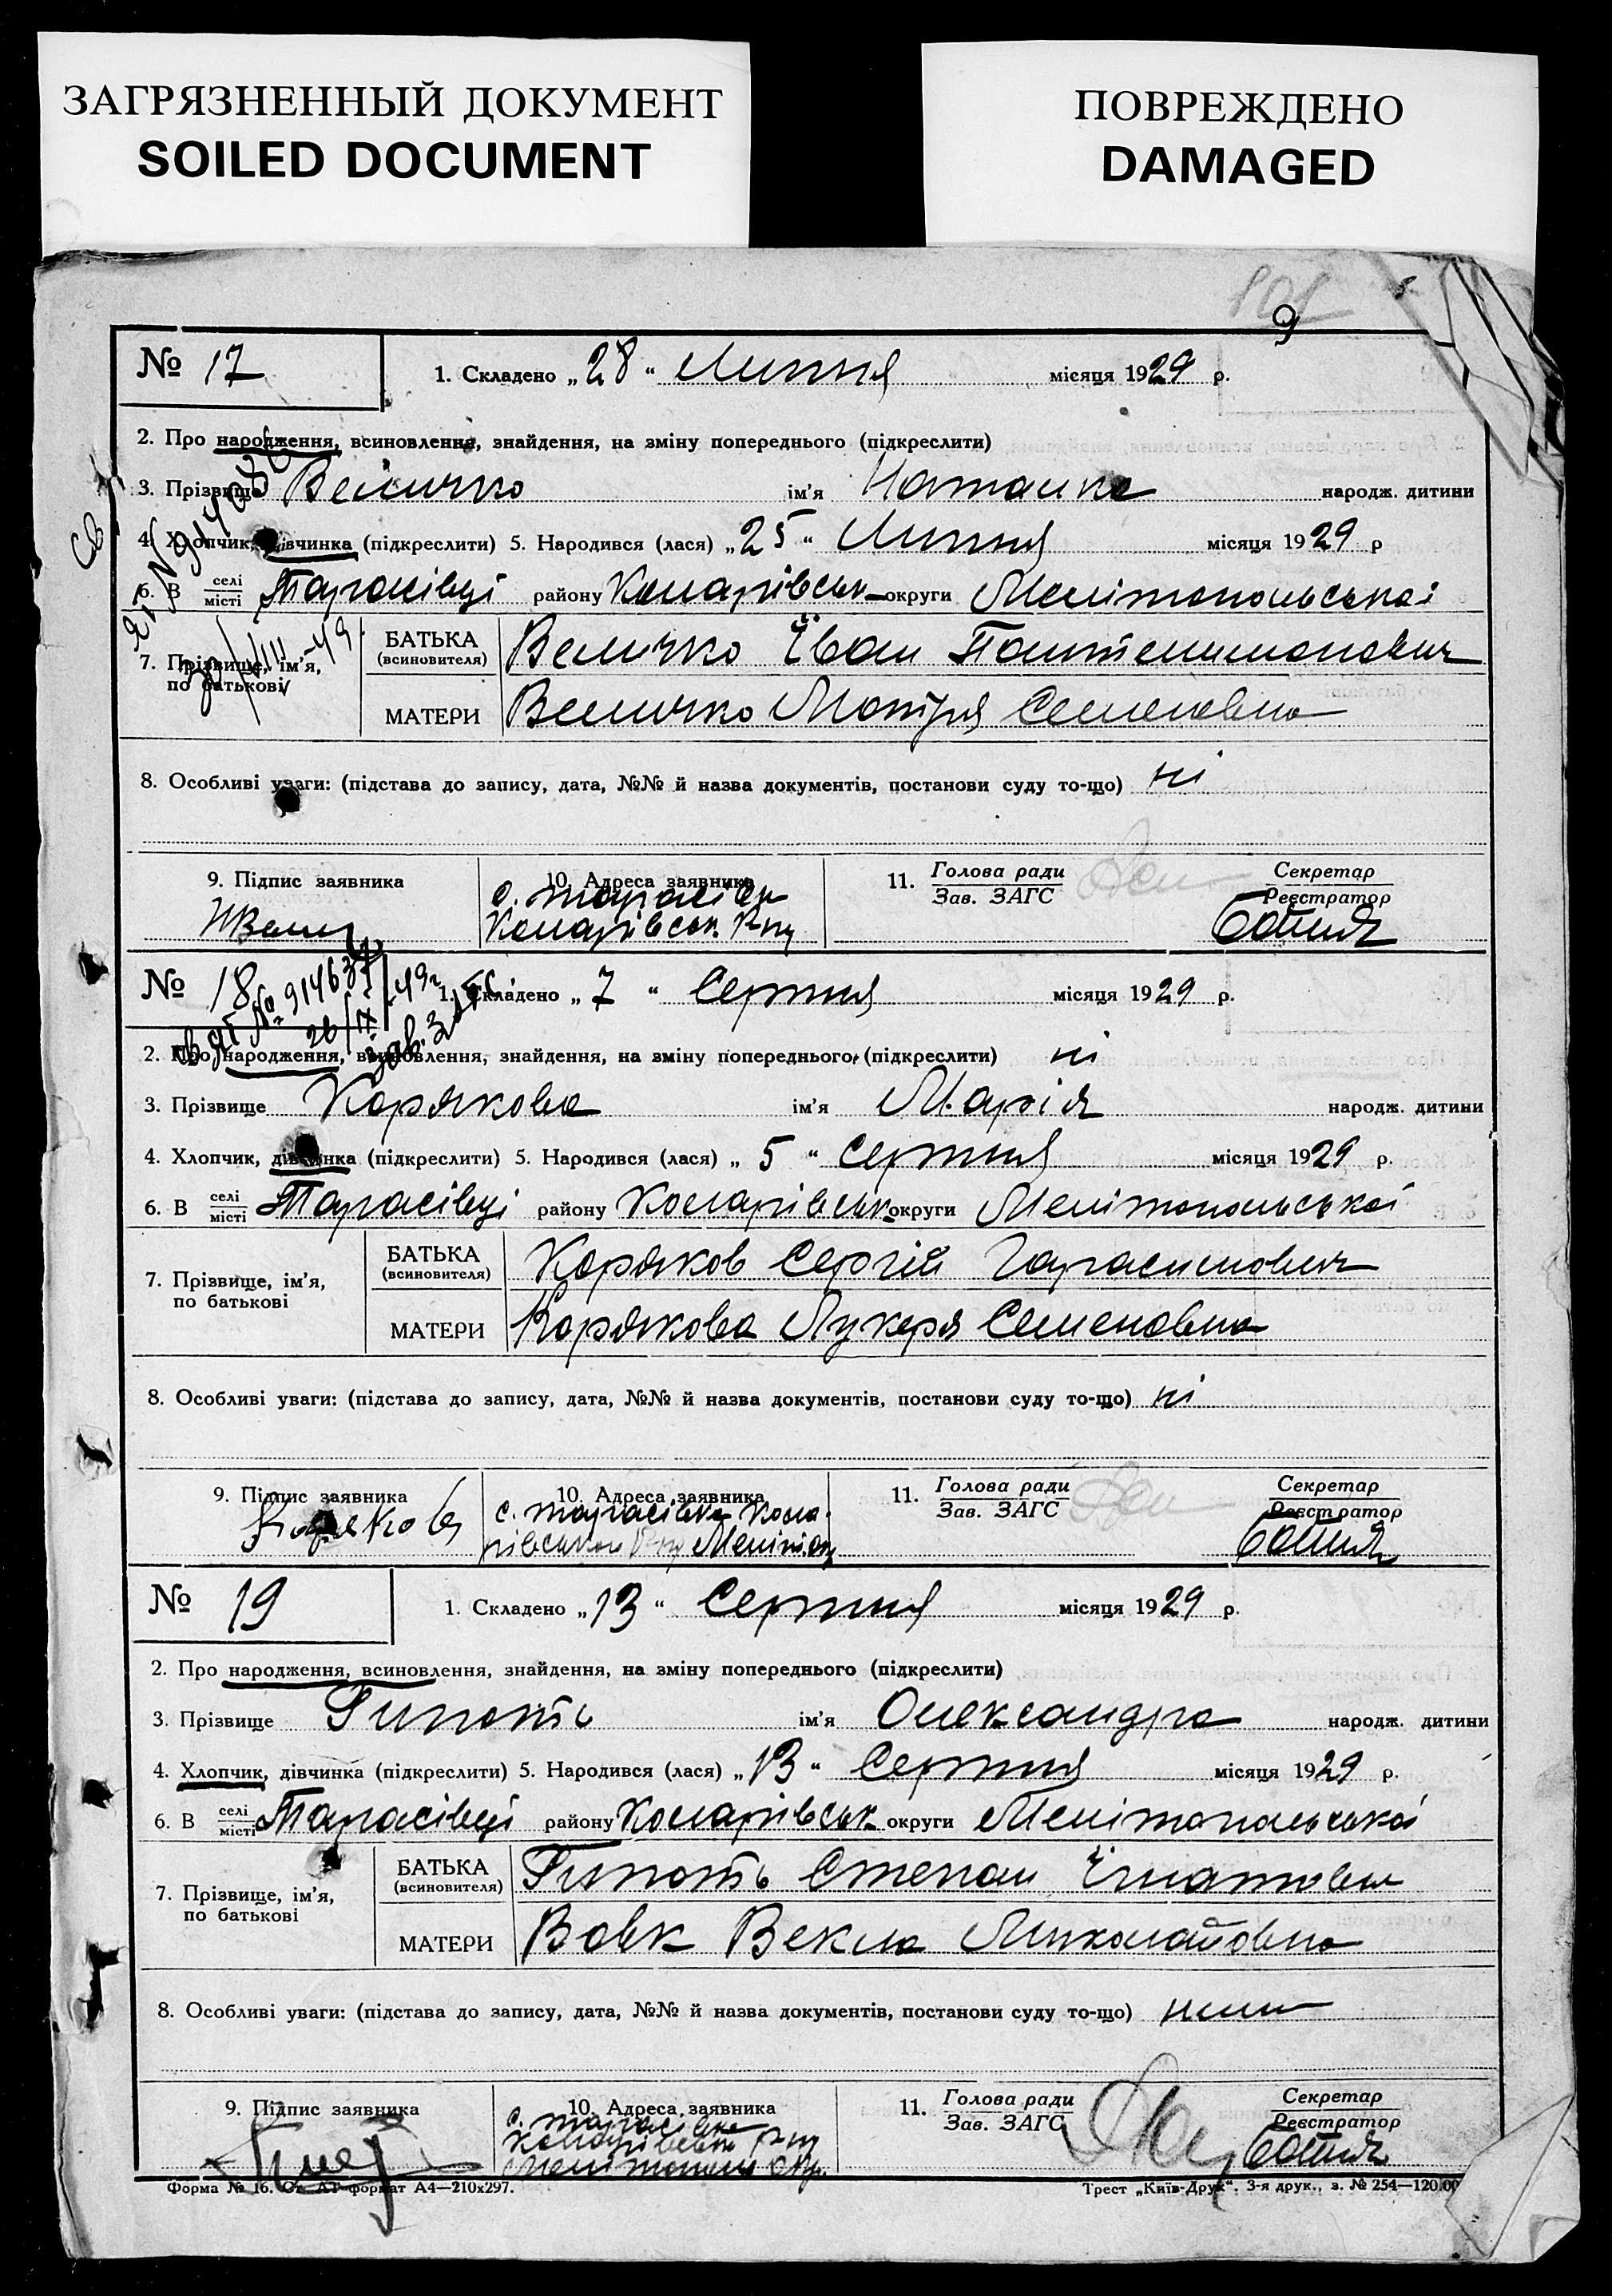 ЗАГРЯЗНЕННЫЙ ДОКУМЕНТ
SOILED DOCUMENT
ПОВРЕЖДЕНО
DAMAGED
9
№ 17
1. Складено „28“ Липня місяця 1929 р.
2. Про народження, всиновлення, знайдення, на зміну попереднього (підкреслити)
3. Прізвище Величко ім'я Наталка народж. дитини
4. Хлопчик, дівчинка (підкреслити) 5. Народився (лася) „25“ Липня місяця 1929 р
6. В селі місті Тарасівці району Комарівськ округи Мелітопольської
7. Прізвище, ім'я, по батькові
БАТЬКА (всиновителя) Величко Їван Пантелимонович
МАТЕРИ Величко Мотря Семеновна
8. Особливі уваги: (підстава до запису, дата, №№ й назва документів, постанови суду то-що) ні
9. Підпис заявника
10. Адреса заявника
с. Тарасівка
11. Голова ради
Зав. ЗАГС
Секретар
Реєстратор
№ 18
1. Складено „7“ Серпня місяця 1929 р.
ЯГ № 914637
26/IX-49
2. Про народження, всиновлення, знайдення, на зміну попереднього (підкреслити) ні
3. Прізвище Корякова ім'я Марія народж. дитини
4. Хлопчик, дівчинка (підкреслити) 5. Народився (лася) „5“ Серпня місяця 1929 р.
6. В селі місті Тарасівці району Комарівськ округи Мелітопольської
7. Прізвище, ім'я, по батькові
БАТЬКА (всиновителя) Коряков Сергій Гарасимович
МАТЕРИ Корякова Лукеря Семеновна
8. Особливі уваги: (підстава до запису, дата, №№ й назва документів, постанови суду то-що) ні
9. Підпис заявника
Коряков
10. Адреса заявника
с. Тарасівка
11. Голова ради
Зав. ЗАГС
Секретар
Реєстратор
№ 19
1. Складено „13“ Серпня місяця 1929 р.
2. Про народження, всиновлення, знайдення, на зміну попереднього (підкреслити)
3. Прізвище ім'я Олександра народж. дитини
4. Хлопчик, дівчинка (підкреслити) 5. Народився (лася) „13“ Серпня місяця 1929 р.
6. В селі місті Тарасівці району Комарівськ округи Мелітопольської
7. Прізвище, ім'я, по батькові
БАТЬКА (всиновителя) Степан Їгнатович
МАТЕРИ Вовк Векла Миколайовна
8. Особливі уваги: (підстава до запису, дата, №№ й назва документів, постанови суду то-що)
9. Підпис заявника
10. Адреса заявника
с. Тарасівка
11. Голова ради
Зав. ЗАГС
Секретар
Реєстратор
Форма № 16. Ст. АТ формат А4—210х297.
Трест „Київ-Друк“. 3-я друк., з. № 254—120.00